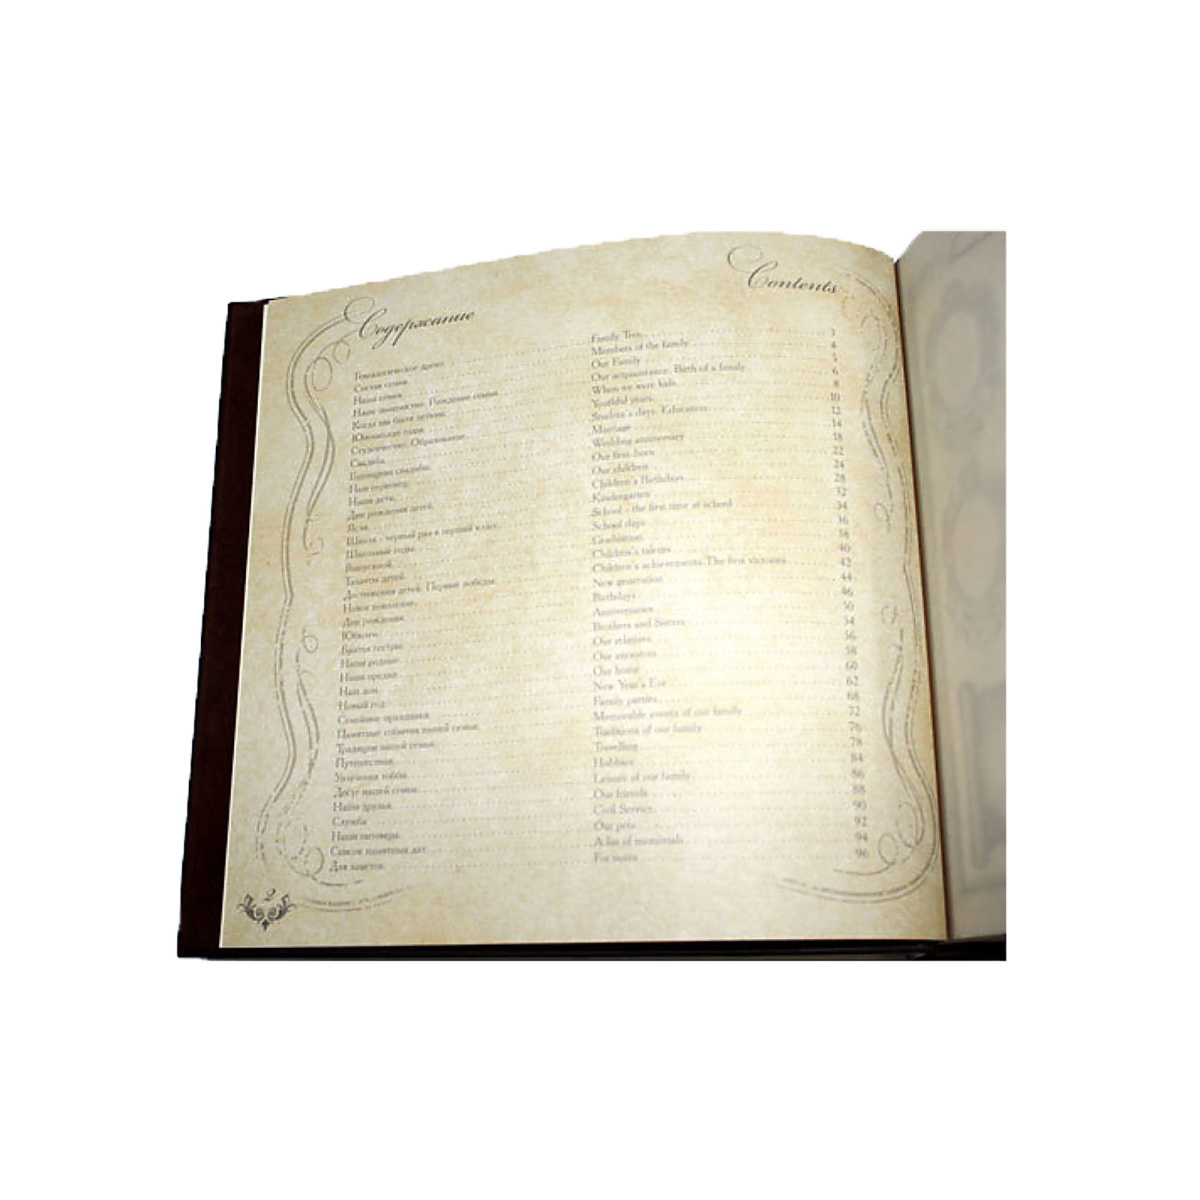 Содержание Contents
Генеалогическое древо Family Tree 3
Состав семьи Members of the family 4
Наша семья Our Family 5
Наше знакомство. Рождение семьи Our acquaintance. Birth of a family 6
Когда мы были детьми When we were kids 8
Юношеские годы Youthful years 10
Студенчество. Образование Student's days. Education 12
Свадьба Marriage 14
Годовщина свадьбы Wedding anniversary 18
Наш первенец Our first-born 22
Наши дети Our children 24
Дни рождения детей Children's Birthdays 28
Ясли Kindergarten 32
Школа - первый раз в первый класс School - the first time at school 34
Школьные годы School days 36
Выпускной Graduation 38
Таланты детей Children's talents 40
Достижения детей. Первые победы Children's achievements. The first victories 42
Новое поколение New generation 44
Дни рождения Birthdays 46
Юбилеи Anniversaries 50
Братья сестры Brothers and Sisters 54
Наши родные Our relatives 56
Наши предки Our ancestors 58
Наш дом Our home 60
Новый год New Year's Eve 62
Семейные праздники Family parties 68
Памятные события нашей семьи Memorable events of our family 72
Традиции нашей семьи Traditions of our family 76
Путешествия Travelling 78
Увлечения хобби Hobbies 84
Досуг нашей семьи Leisure of our family 86
Наши друзья Our friends 88
Служба Civil Service 90
Наши питомцы Our pets 92
Список памятных дат A list of memorials 94
Для заметок For notes 96
2